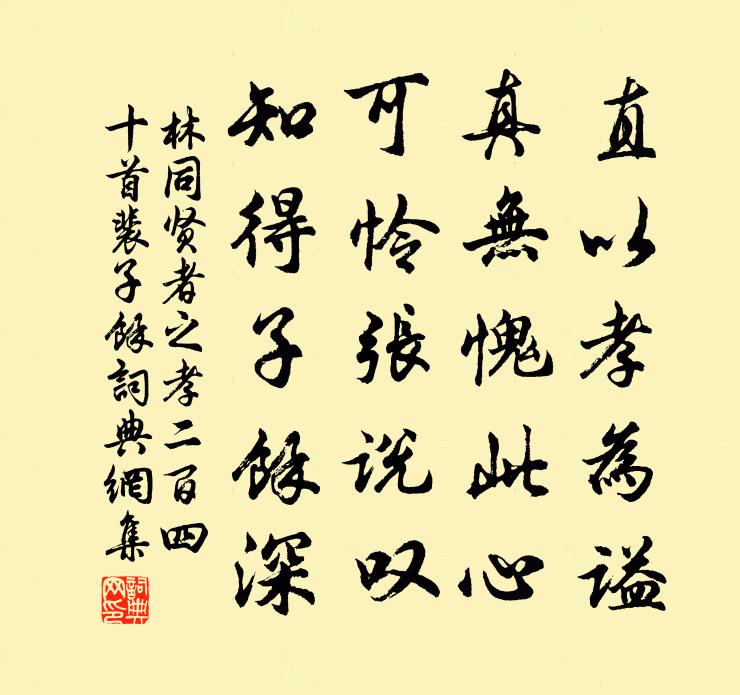 直以孝為謚
真無愧此心
可怜張说叹
知得子餘深
林同贤者之孝二百四
十首裴子餘詞典網集